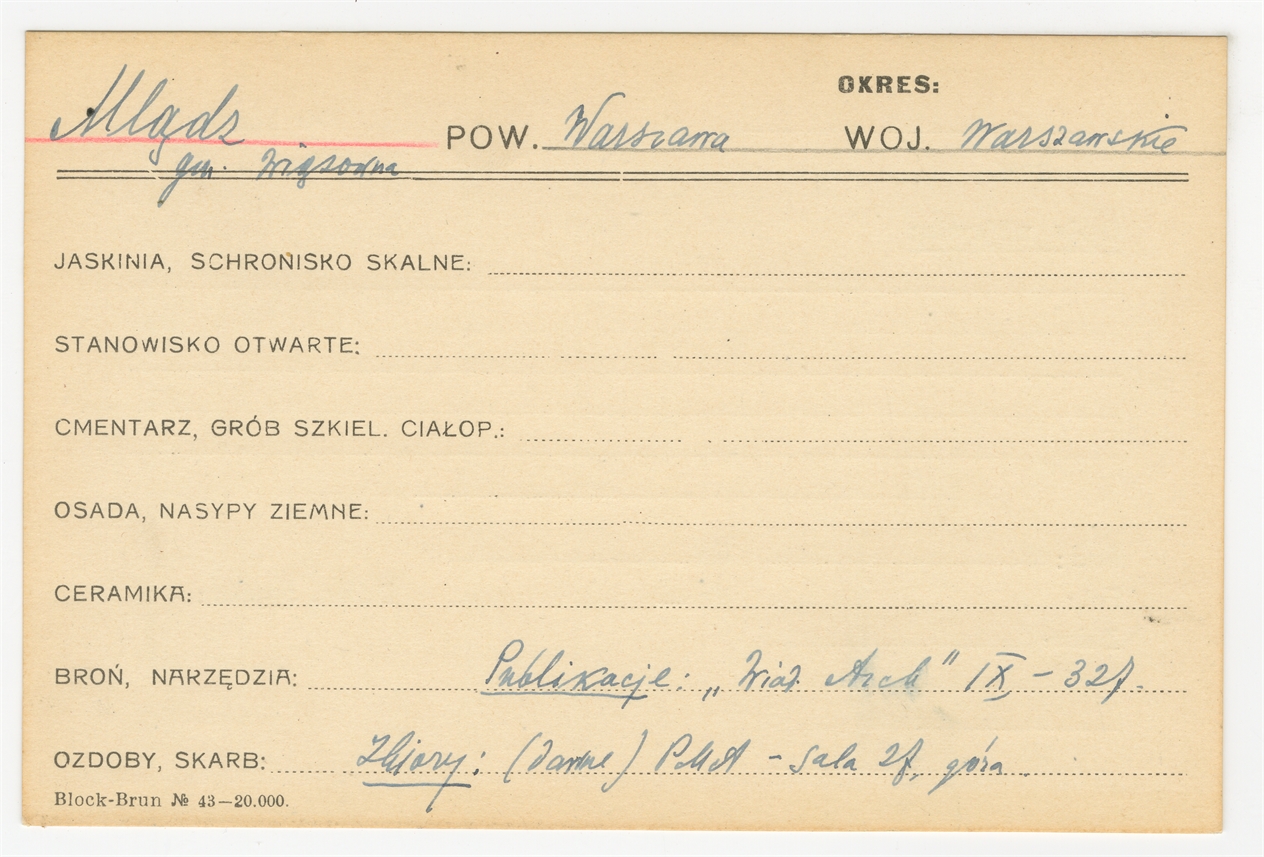 OKRES:
Mlądz POW. Warszawa WOJ. Warszawskie
gm. Wiązowna
JASKINIA, SCHRONISKO SKALNE:
STANOWISKO OTWARTE:
CMENTARZ, GRÓB SZKIEL. CIAŁOP.:
OSADA, NASYPY ZIEMNE:
CERAMIKA:
BROŃ, NARZĘDZIA: Publikacje: „Wiad. Arch" IX – 327.
OZDOBY, SKARB: Zbiory: (dawne) PMA – sala 27, góra.
Block-Brun № 43–20.000.